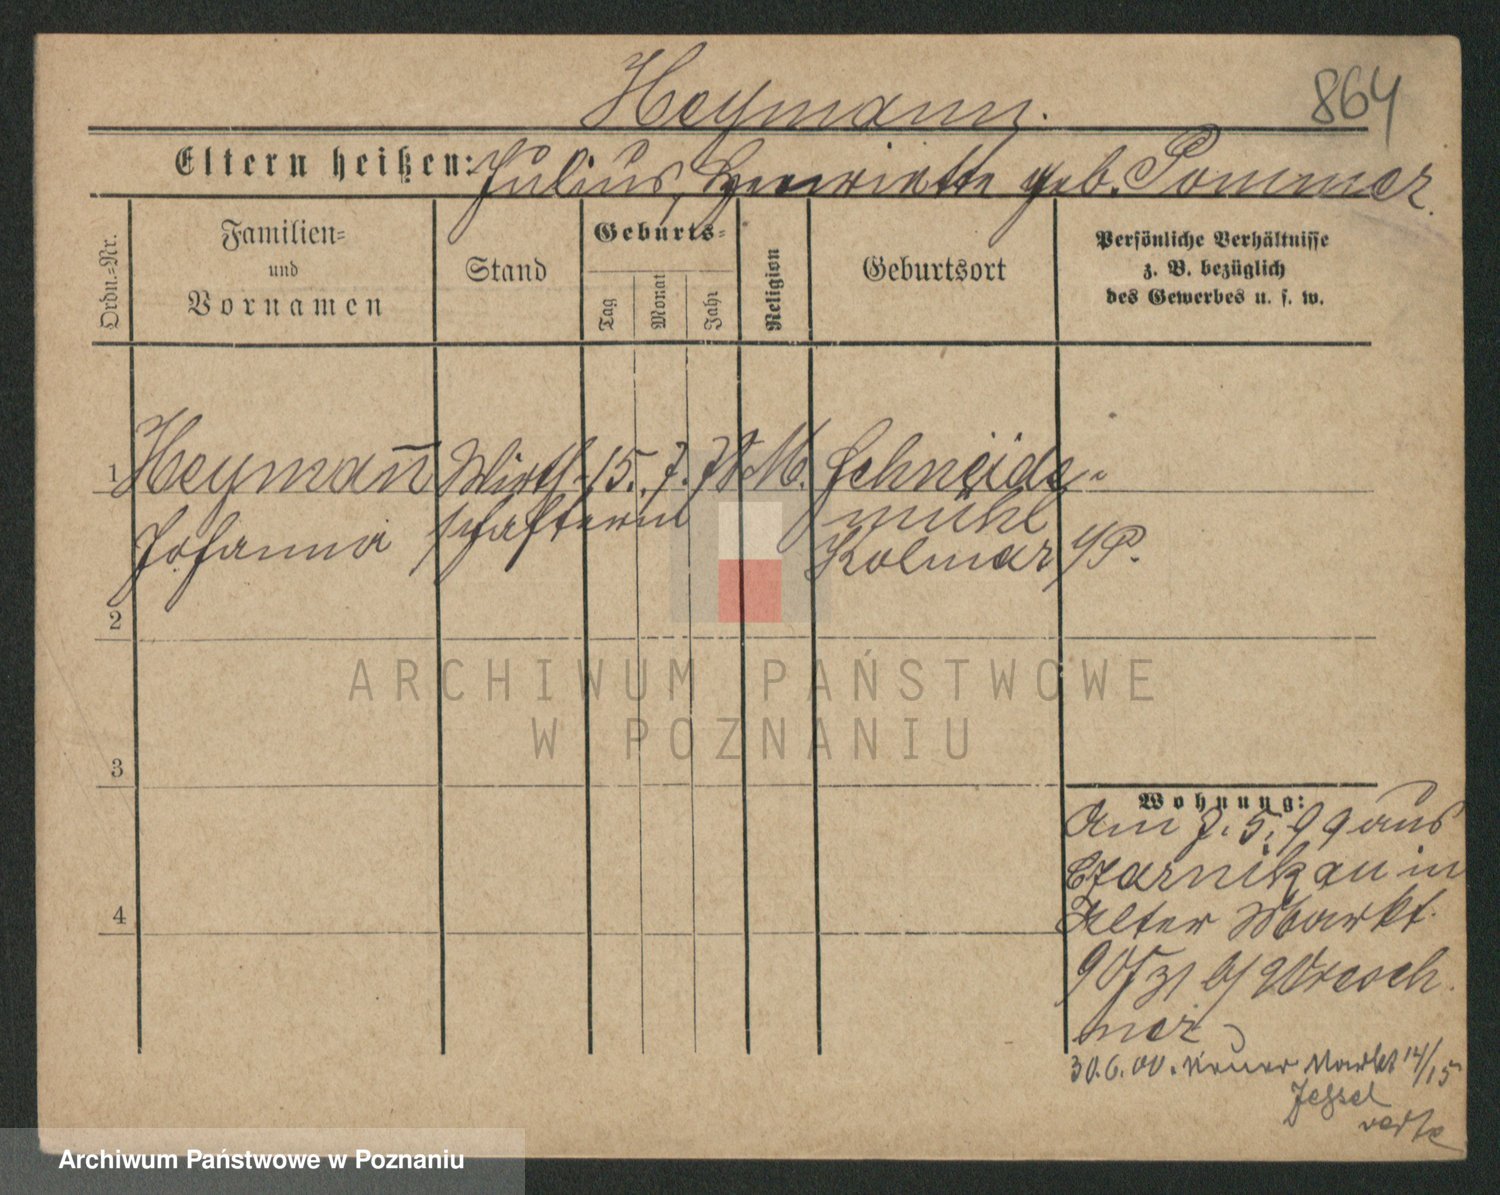 Heymann.
864
Eltern heißen: Julius, Henriette geb. Pommer.
Ordn.=Nr.
Familien=
und
Vornamen
Stand
Geburts=
Tag
Monat
Jahr
Religion
Geburtsort
Persönliche Verhältnisse
z. B. bezüglich
des Gewerbes u. s. w.
1 Heyman̄ Wirth 15. 7. M. Schneide-
Johanna schafterin mühl
Kolmar i/P.
2
3
4
ARCHIWUM PAŃSTWOWE
W POZNANIU
Wohnung:
Am 7. 5. 99 aus
Czarnikau in
Alter Markt
90 b/ Wresch
ner
30.6.00. Neuer Markt 14/15
Jessel
verte
Archiwum Państwowe w Poznaniu